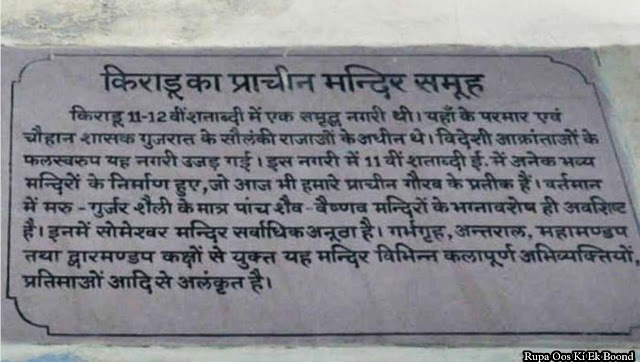 किराडू का प्राचीन मन्दिर समूह
किराडू 11-12 वीं शताब्दी में एक समृद्ध नगरी थी। यहाँ के परमार एवं
चौहान शासक गुजरात के सौलंकी राजाओं के अधीन थे। विदेशी आक्रांताओं के
फलस्वरुप यह नगरी उजड़ गई। इस नगरी में 11 वीं शताब्दी ई. में अनेक भव्य
मन्दिरों के निर्माण हुए, जो आज भी हमारे प्राचीन गौरव के प्रतीक हैं। वर्तमान
में मरु - गुर्जर शैली के मात्र पांच शैव - वैष्णव मन्दिरों के भग्नावशेष ही अवशिष्ट
है। इनमें सोमेश्वर मन्दिर सर्वाधिक अनूठा है। गर्भगृह, अन्तराल, महामण्डप
तथा द्वारमण्डप कक्षों से युक्त यह मन्दिर विभिन्न कलापूर्ण अभिव्यक्तियों,
प्रतिमाओं आदि से अलंकृत है।
Rupa Oos Ki Ek Boond